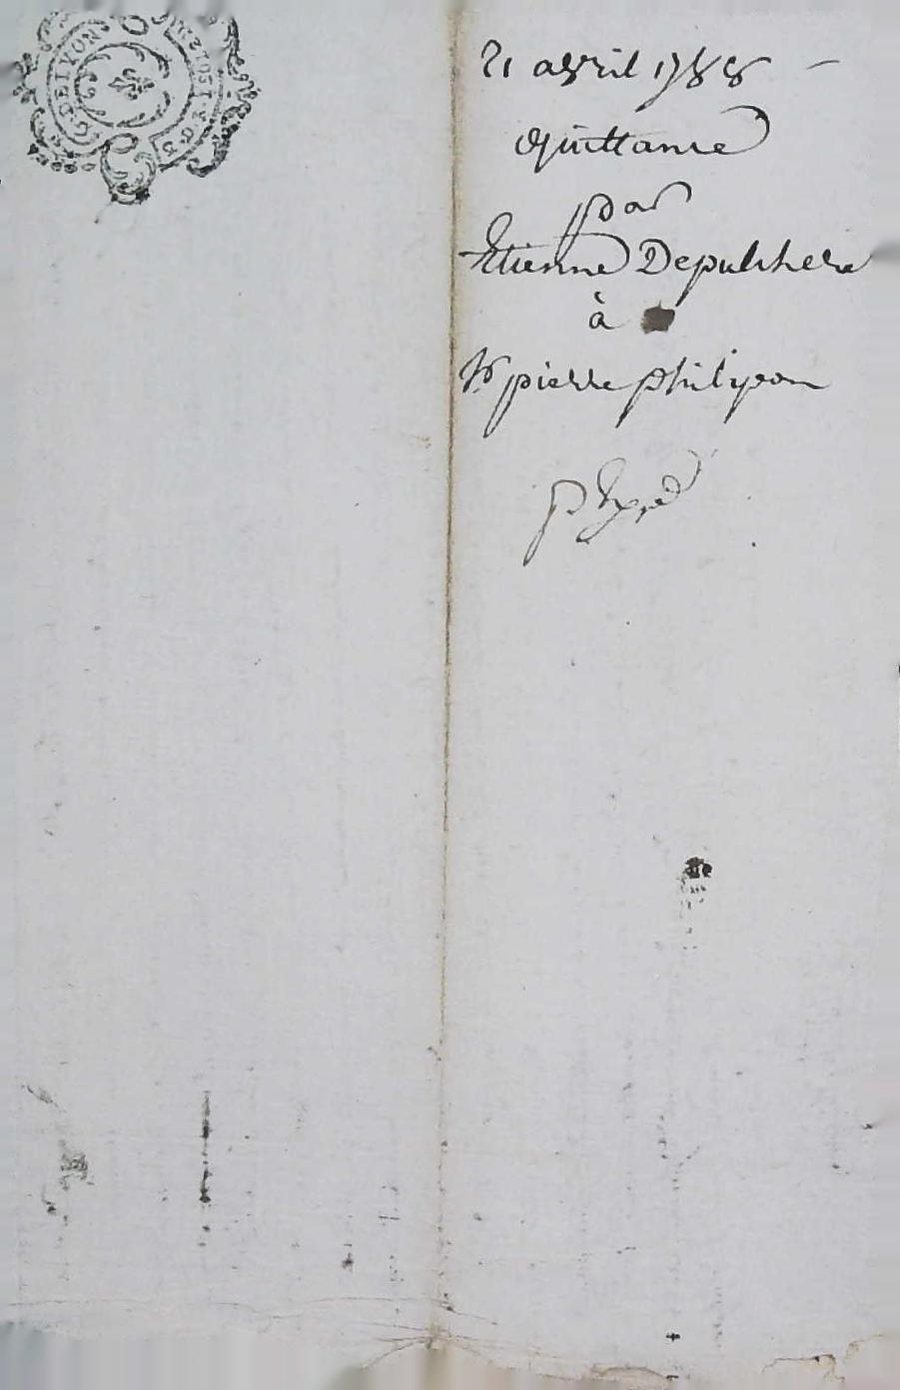 G. DE LYON
21 avril 1788 -
Quittance
par
Etienne Depulchere
à
Sr pierre philipon
p Exped